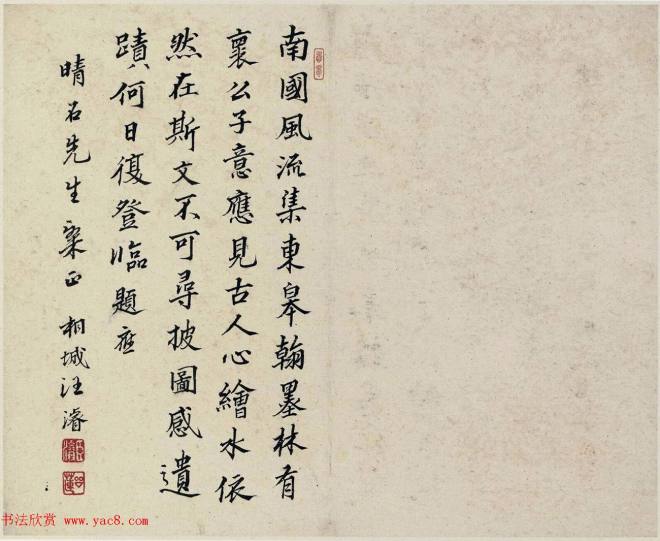 南國風流集東皋翰墨林有
襄公子意應見古人心繪水依
然在斯文不可尋披圖感遺
蹟何日復登臨題應
晴石先生粲正 桐城汪濬
书法欣赏 www.yac8.com